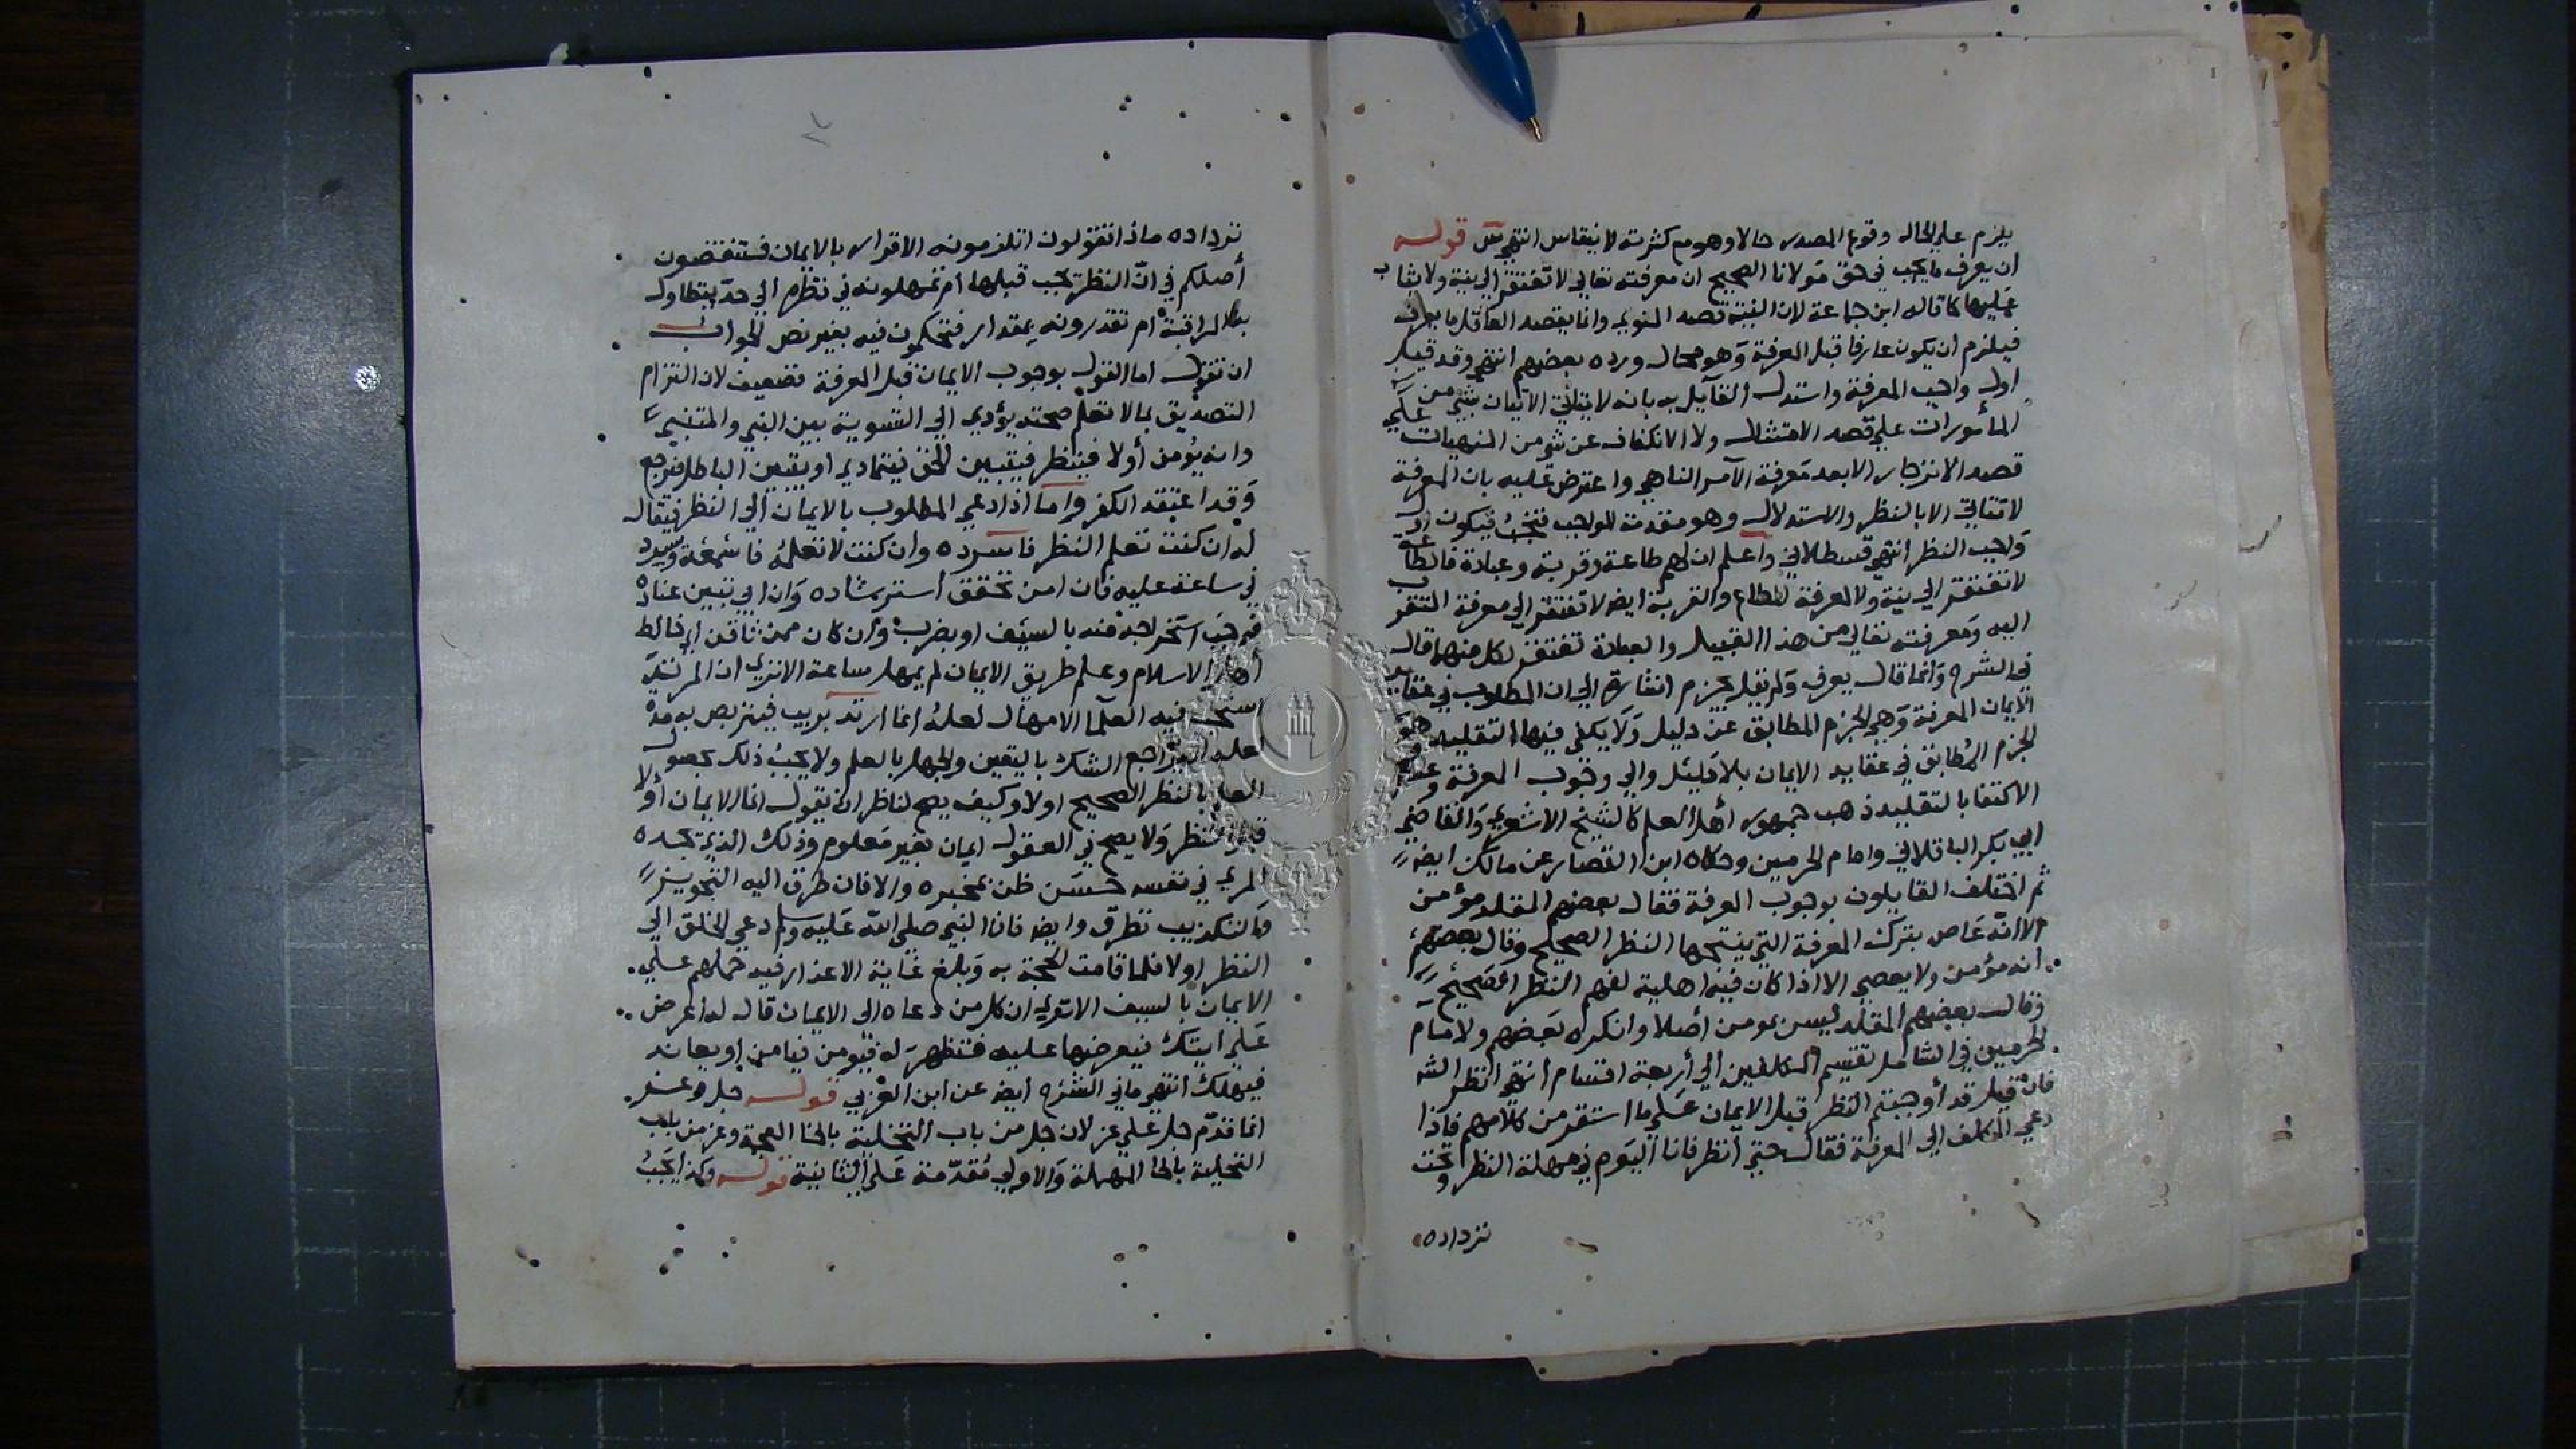 يلزم على الحال وقوع المصدر حالا وهو مع كثرته لا ينقاس انتهى ش قوله
ان يعرف ما يجب في حق مولانا الصحيح ان معرفته تعالى لا تفتقر الى نية ولا يثاب
عليها كما قاله ابن جماعة لان النية قصد المنوي وانما يقصد العاقل ما يعرف
فيلزم أن يكون عارفا قبل المعرفة وهو محال ورده بعضهم انتهى وقد قيل
اول واجب المعرفة واستدل القايل به بانه لا يتأتى الاتيان بشيء من
المأمورات على قصد الامتثال ولا الانكفاف عن شيء من المنهيات على
قصد الانزجار الا بعد معرفة الآمر الناهي واعترض عليه بان المعرفة
لا تتأتى الا بالنظر والاستدلال وهو مقدمة للواجب فتجب فيكون اول
واجب النظر انتهى قسطلاني واعلم ان لهم طاعة وقربة وعبادة فالطاعة
لا تفتقر الى نية ولا لمعرفة المطاع والقربة ايضا لا تفتقر الى معرفة المتقرب
اليه ومعرفته تعالى من هذا القبيل والعبادة تفتقر لكل منهما قال
في الشرح وانما قال يعرف ولم يقل يجزم اشارة الى ان المطلوب في عقايد
الايمان المعرفة وهي الجزم المطابق عن دليل ولا يكفي فيها التقليد وهو
الجزم المطابق في عقايد الايمان بلا دليل والى وجوب المعرفة وعدم
الاكتفا بالتقليد ذهب جمهور أهل العلم كالشيخ الاشعري والقاضي
ابي بكر الباقلاني وامام الحرمين وحكاه ابن القصار عن مالك ايضا
ثم اختلف القايلون بوجوب المعرفة فقال بعضهم المقلد مؤمن
الا انه عاص بترك المعرفة التي ينتجها النظر الصحيح وقال بعضهم
انه مؤمن ولا يعصي الا اذا كان فيه اهلية لفهم النظر الصحيح
وقال بعضهم المقلد ليس بمومن أصلا وانكره بعضهم ولامام
الحرمين في الشامل تقسيم المكلفين الى أربعة اقسام انتهى انظر الشـ
فان قيل قد أوجبتم النظر قبل الايمان على ما استقر من كلامهم فاذا
دعي المكلف الى المعرفة فقال حتى أنظر فانا اليوم في مهلة النظر وتحت
تزداده
تزداده ماذا تقولون اتلزمونه الاقرار بالايمان فتنقضون
أصلكم في ان النظر يجب قبلها أم تمهلونه في نظره الى حد يتطاول
به المراقبة ام تقدرونه بمقدار فتحكمون فيه بغير نص الجواب
ان نقول اما القول بوجوب الايمان قبل المعرفة فضعيف لان التزام
التصديق بما لا تعلم صحته يؤدي الى التسوية بين النبي والمتنبي
وانه يؤمن أولا فينظر فيتبين الحق فيتمادى او يتبين الباطل فيرجع
وقد اعتقد الكفر واما اذا دعي المطلوب بالايمان الى النظر فيقال
له ان كنت تعلم النظر فاسرده وان كنت لا تعلمه فاسمعه ويسرد
في ساعة عليه فان امن تحقق استرشاده وان ابى تبين عناده
فوجب استخراجه منه بالسيف او يضرب وان كان ممن ثافن اي خالط
أهل الاسلام وعلم طريق الايمان لم يمهل ساعة الا ترى ان المرتد
استحب فيه العلما الامهال لعله انما ارتد بريب فيتربص به مدة
لعله ان يراجع الشك باليقين والجهل بالعلم ولا يجب ذلك لحصول
العلم بالنظر الصحيح اولا وكيف يصح لناظر ان يقول انما الايمان أولا
قبل النظر ولا يصح في العقول ايمان بغير معلوم وذلك الذي تجده
المرء في نفسه حسن ظن بمخبره والا فان طرق اليه التجويز
والتكذيب تطرق وايضا فان النبي صلى الله عليه وسلم دعى الخلق الى
النظر اولا فلما قامت الحجة به وبلغ غاية الاعذار فيه حملهم على
الايمان بالسيف الا ترى ان كل من دعاه الى الايمان قال له أعرض
على ايتك فيعرضها عليه فتظهر له فيومن فيامن او يعاند
فيهلك انتهى ما في الشرح أيضا عن ابن العربي قوله جل وعز
انما قدم جل على عز لان جل من باب التخلية بالخا المعجمة وعز من باب
التحلية بالحا المهملة والاولى مقدمة على الثانية قوله وكذا يجب